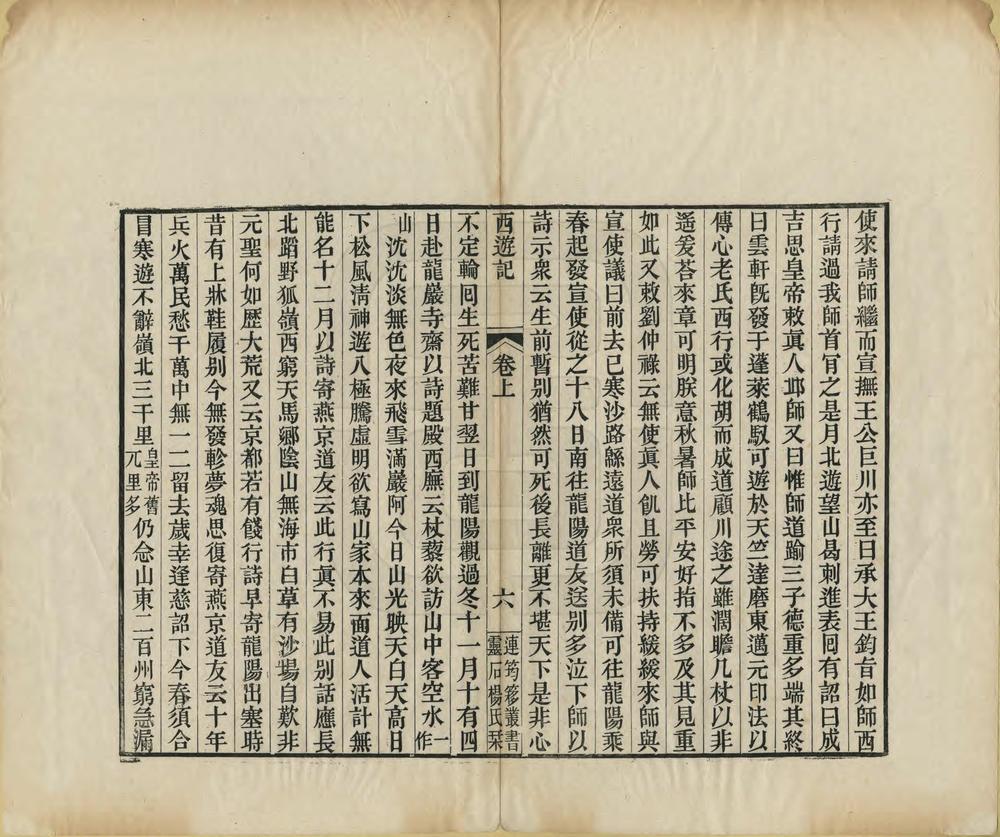 使來請師繼而宣撫王公巨川亦至曰承大王鈞旨如師西
行請過我師首肎之是月北遊望山曷剌進表囘有詔曰成
吉思皇帝敕眞人邱師又曰惟師道踰三子德重多端其終
曰雲軒旣發于蓬萊鶴馭可遊於天竺達磨東邁元印法以
傳心老氏西行或化胡而成道顧川途之雖濶瞻几杖以非
遥爰荅來章可明朕意秋暑師比平安好指不多及其見重
如此又敕劉仲祿云無使眞人飢且勞可扶持緩緩來師與
宣使議曰前去已寒沙路緜遠道衆所須未備可往龍陽乘
春起發宣使從之十八日南往龍陽道友送别多泣下師以
詩示衆云生前暫别猶然可死後長離更不堪天下是非心
西遊記 卷上 六 連筠簃叢書 靈石楊氏栞
不定輪囘生死苦難甘翌日到龍陽觀過冬十一月十有四
日赴龍巖寺齋以詩題殿西廡云杖藜欲訪山中客空水一作
山沈沈淡無色夜來飛雪滿巖阿今日山光映天白天高日
下松風淸神遊八極騰虛明欲寫山家本來面道人活計無
能名十二月以詩寄燕京道友云此行眞不易此别話應長
北蹈野狐嶺西窮天馬鄉陰山無海市白草有沙場自歎非
元聖何如歷大荒又云京都若有餞行詩早寄龍陽出塞時
昔有上牀鞋履别今無發軫夢魂思復寄燕京道友云十年
兵火萬民愁千萬中無一二留去歲幸逢慈詔下今春須合
冒寒遊不辭嶺北三千里皇帝舊兀里多仍念山東二百州窮急漏